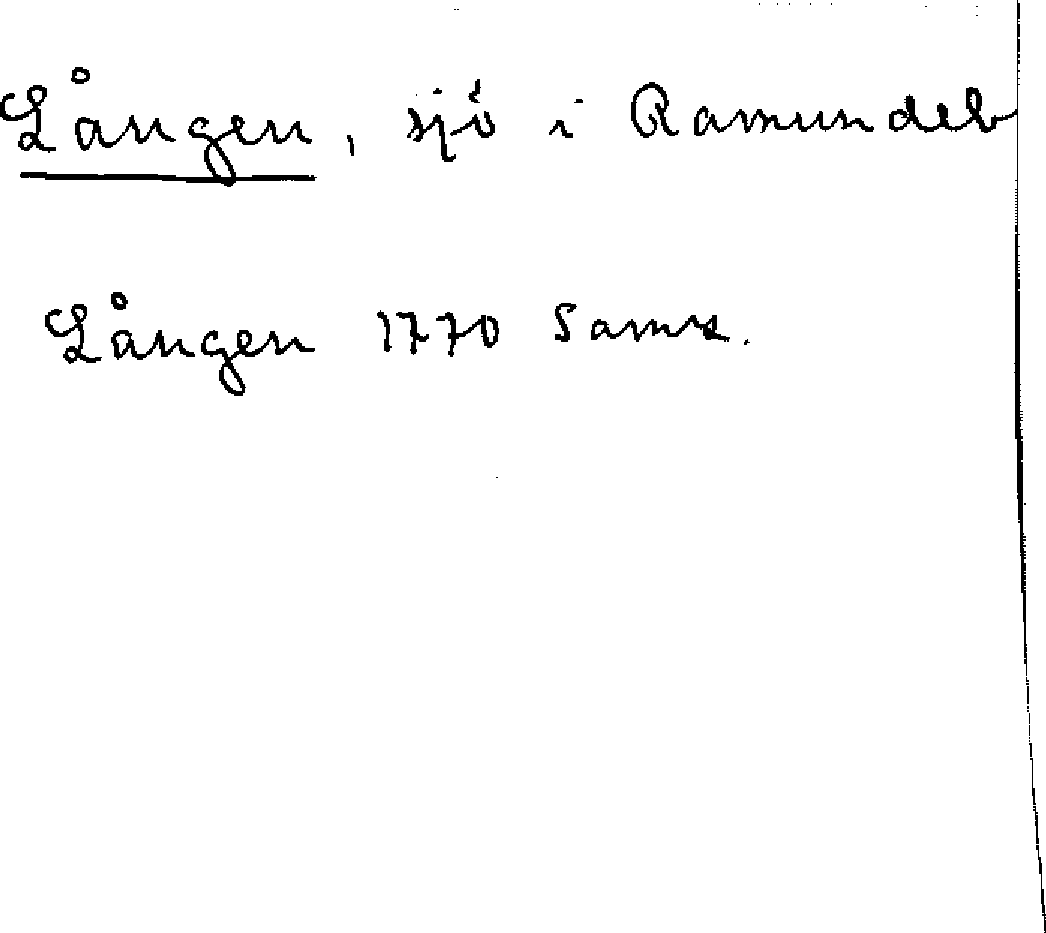 Lången, sjö i Ramundeb
Lången 1770 Samz.